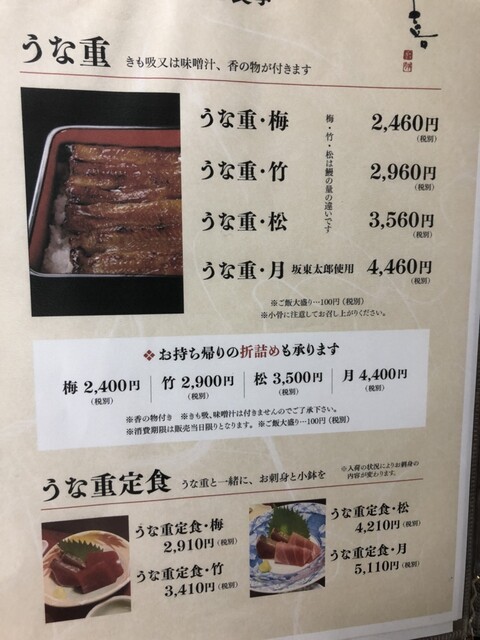 うな重 きも吸又は味噌汁、香の物が付きます
うな重・梅 2,460円
(税別)
うな重・竹 2,960円
(税別)
うな重・松 3,560円
(税別)
うな重・月 坂東太郎使用 4,460円
(税別)
梅・竹・松は鰻の量の違いです
※ご飯大盛り…100円(税別)
※小骨に注意してお召し上がりください。
❖ お持ち帰りの折詰めも承ります
梅 2,400円 竹 2,900円 松 3,500円 月 4,400円
(税別) (税別) (税別) (税別)
※香の物付き ※きも吸、味噌汁は付きませんのでご了承下さい。
※消費期限は販売当日限りとなります。 ※ご飯大盛り…100円(税別)
うな重定食 うな重と一緒に、お刺身と小鉢を
※入荷の状況によりお刺身の
内容が変わります。
うな重定食・梅
2,910円(税別)
うな重定食・竹
3,410円(税別)
うな重定食・松
4,210円(税別)
うな重定食・月
5,110円(税別)